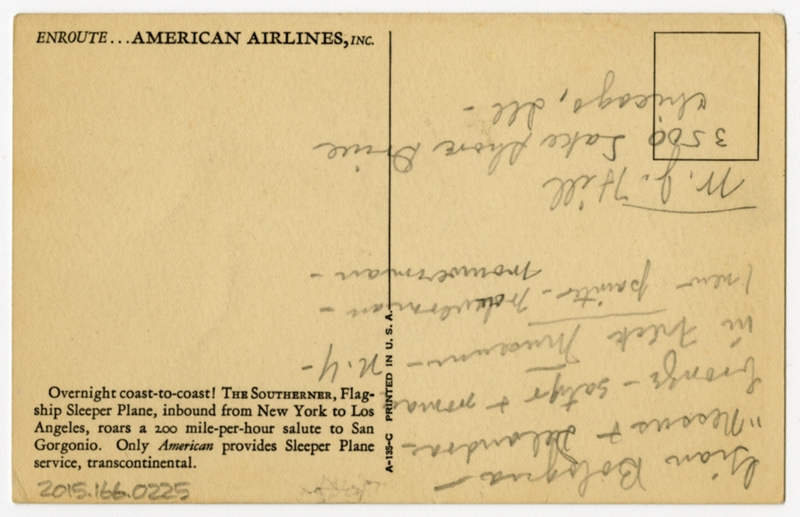 ENROUTE...AMERICAN AIRLINES, INC.
Overnight coast-to-coast! THE SOUTHERNER, Flag-
ship Sleeper Plane, inbound from New York to Los
Angeles, roars a 200 mile-per-hour salute to San
Gorgonio. Only American provides Sleeper Plane
service, transcontinental.
2015.166.0225
A-135-C PRINTED IN U.S.A.
Gian Bologna -
"Nessus +
bronze - satyr +
in Frick Museum - N.Y -
new painter -
W. J. Hill
3500 Lake Shore Drive
Chicago, Ill -